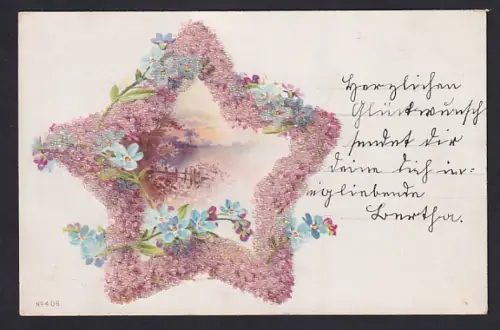 Herzlichen
Glückwunsch
sendet dir
deine dich in-
nigliebende
Bertha.
No 406